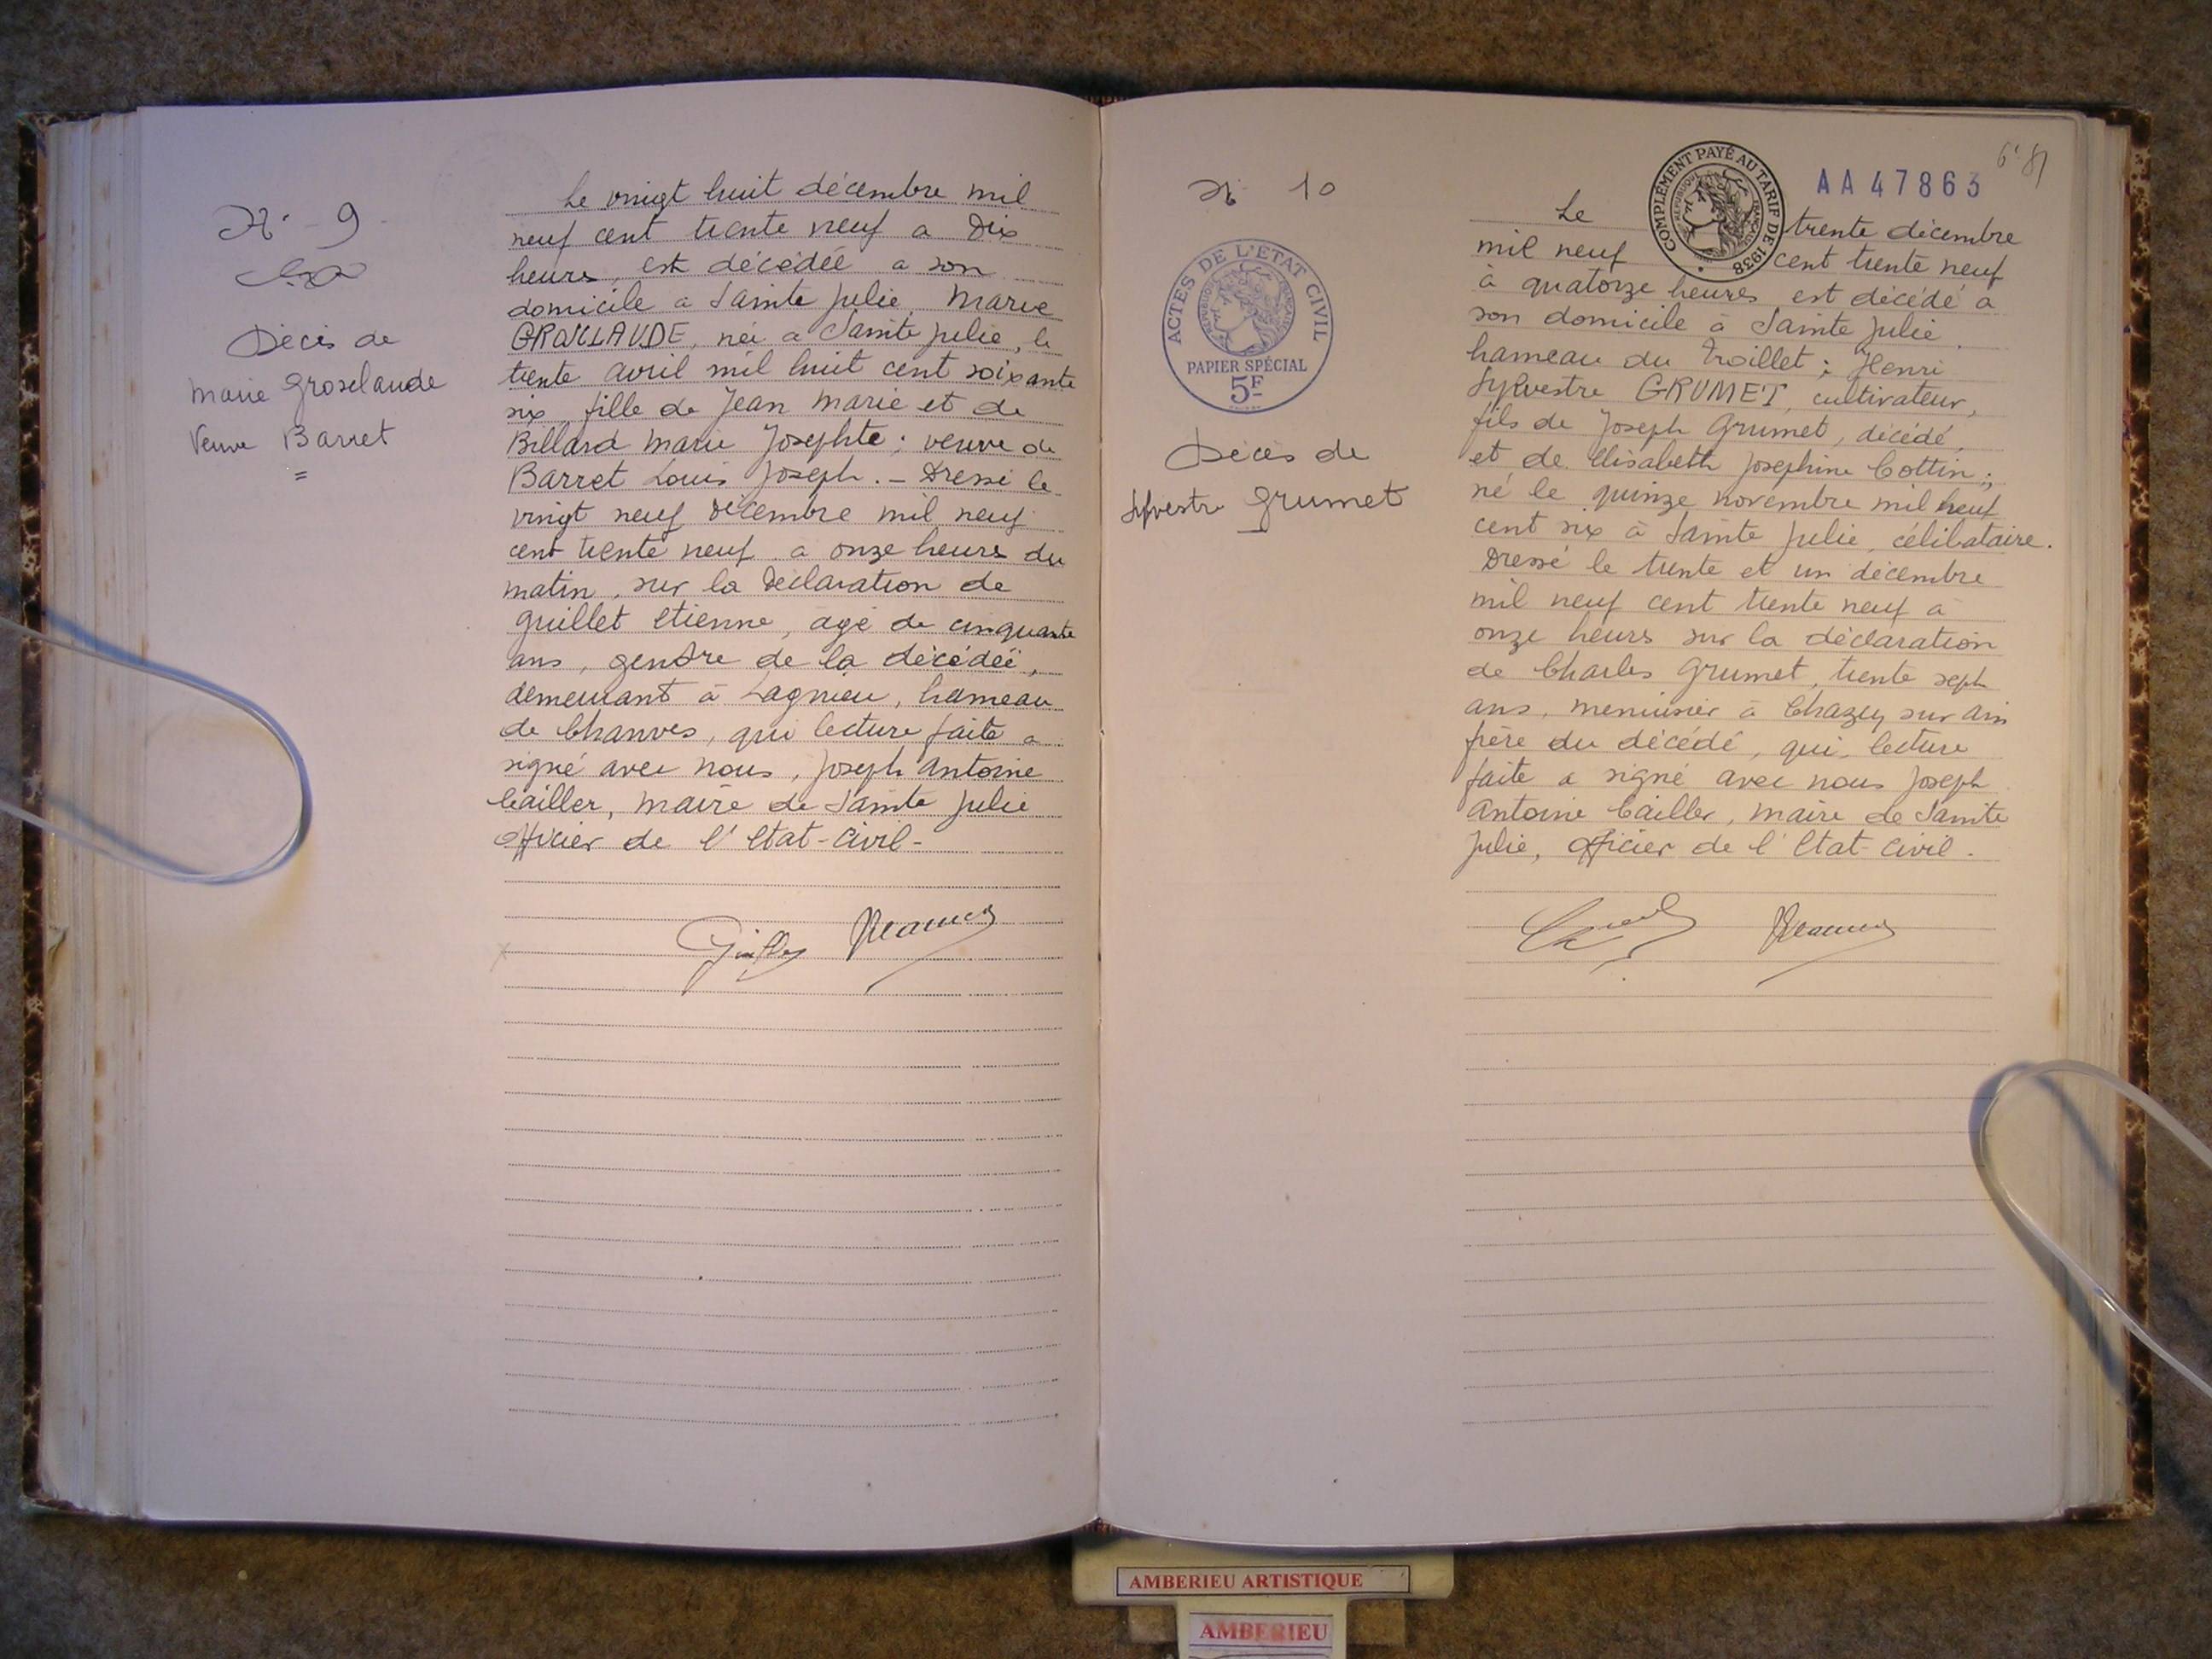 N° 9
Décès de
Marie Groselaude
Veuve Barret
Le vingt huit décembre mil
neuf cent trente neuf a Dix
heures, est décédée a son
domicile a Sainte Julie, Marie
GROSLAUDE, née a Sainte Julie, le
trente avril mil huit cent soixante
six, fille de Jean Marie et de
Billard Marie Josephte; veuve de
Barret Louis Joseph. - Dressé le
vingt neuf décembre mil neuf
cent trente neuf a onze heures du
matin, sur la déclaration de
Guillet Etienne, agé de cinquante
ans, gendre de la décédée,
demeurant à Lagnieu, hameau
de Chanves, qui lecture faite a
signé avec nous, Joseph Antoine
Cailler, maire de Sainte Julie
officier de l'Etat-Civil-
N° 10
ACTES DE L'ETAT CIVIL
REPUBLIQUE FRANÇAISE
PAPIER SPÉCIAL
5F
Décès de
Sylvestre Grumet
COMPLÉMENT PAYÉ AU TARIF DE 1938
REPUBLIQUE FRANÇAISE
AA47863
Le trente décembre
mil neuf cent trente neuf
à quatorze heures est décédé a
son domicile à Sainte Julie.
hameau du Troillet; Henri
Sylvestre GRUMET, cultivateur,
fils de Joseph Grumet, décédé,
et de Elisabeth Josephine Cottin;
né le quinze novembre mil neuf
cent six à Sainte Julie, célibataire.
Dressé le trente et un décembre
mil neuf cent trente neuf à
onze heures sur la déclaration
de Charles Grumet, trente sept
ans, menuisier à Chazey sur Ain
frère du décédé, qui, lecture
faite a signé avec nous Joseph
Antoine Cailler, maire de Sainte
Julie, officier de l'Etat-Civil.
AMBERIEU ARTISTIQUE
AMBERIEU